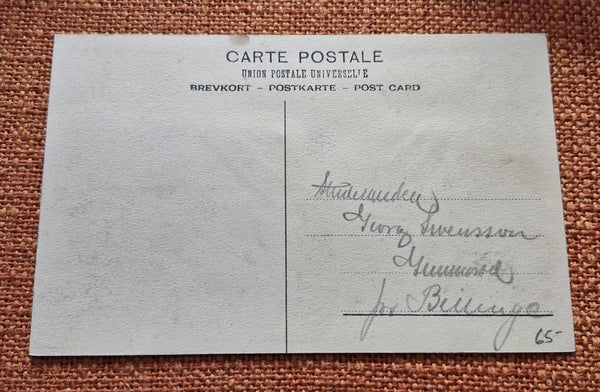 CARTE POSTALE
UNION POSTALE UNIVERSELLE
BREVKORT – POSTKARTE – POST CARD
Studeranden
Georg Svensson
pr Billinge
65-